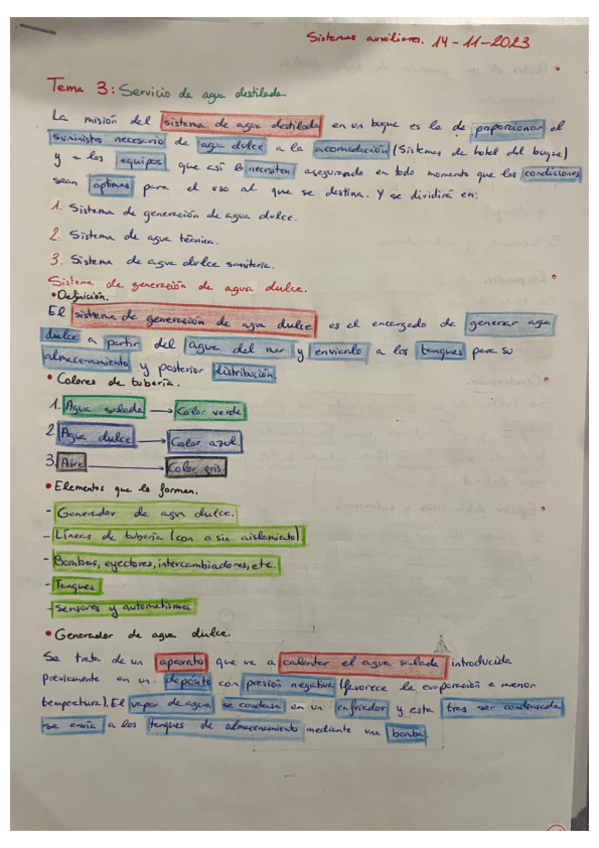 Sistemas auxiliares. 14-11-2023
Tema 3: Servicio de agua destilada.
La misión del sistema de agua destilada en un buque es la de proporcionar el
suministro necesario de agua dulce a la acomodación (Sistemas de hotel del buque)
y a los equipos que así lo necesiten asegurando en todo momento que las condiciones
sean óptimas para el uso al que se destina. Y se dividirá en:
1. Sistema de generación de agua dulce.
2. Sistema de agua técnica.
3. Sistema de agua dulce sanitaria.
Sistema de generación de agua dulce.
• Definición.
El sistema de generación de agua dulce es el encargado de generar agua
dulce a partir del agua del mar y enviarlo a los tanques para su
almacenamiento y posterior distribución.
• Colores de tubería.
1. Agua salada → Color verde
2. Agua dulce → Color azul
3. Aire → Color gris.
• Elementos que lo forman.
- Generador de agua dulce.
- Líneas de tubería (con o sin aislamiento)
- Bombas, eyectores, intercambiadores, etc.
- Tanques.
- Sensores y automatismos
• Generador de agua dulce.
Se trata de un aparato que va a calentar el agua salada introducida
previamente en un depósito con presión negativa (favorece la evaporación a menor
temperatura). El vapor de agua se condensa en un enfriador y esta tras ser condensada
se envía a los tanques de almacenamiento mediante una bomba.